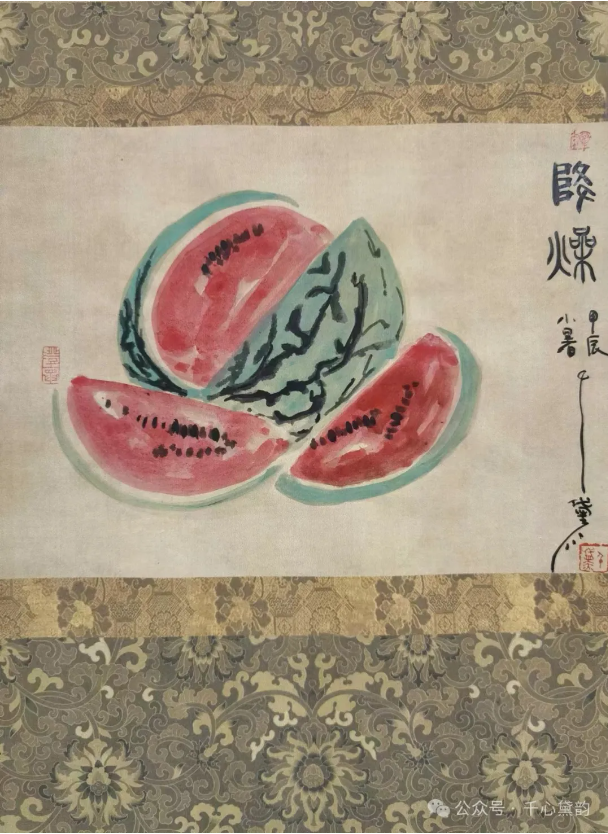 降燥
甲辰
小暑
千黛
公众号·千心黛韵